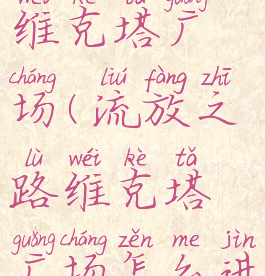 wéi kè tǎ guǎng
维克塔广
chǎng liú fàng zhī
场(流放之
lù wéi kè tǎ
路维克塔
guǎng chǎng zěn me jìn
广场怎么进